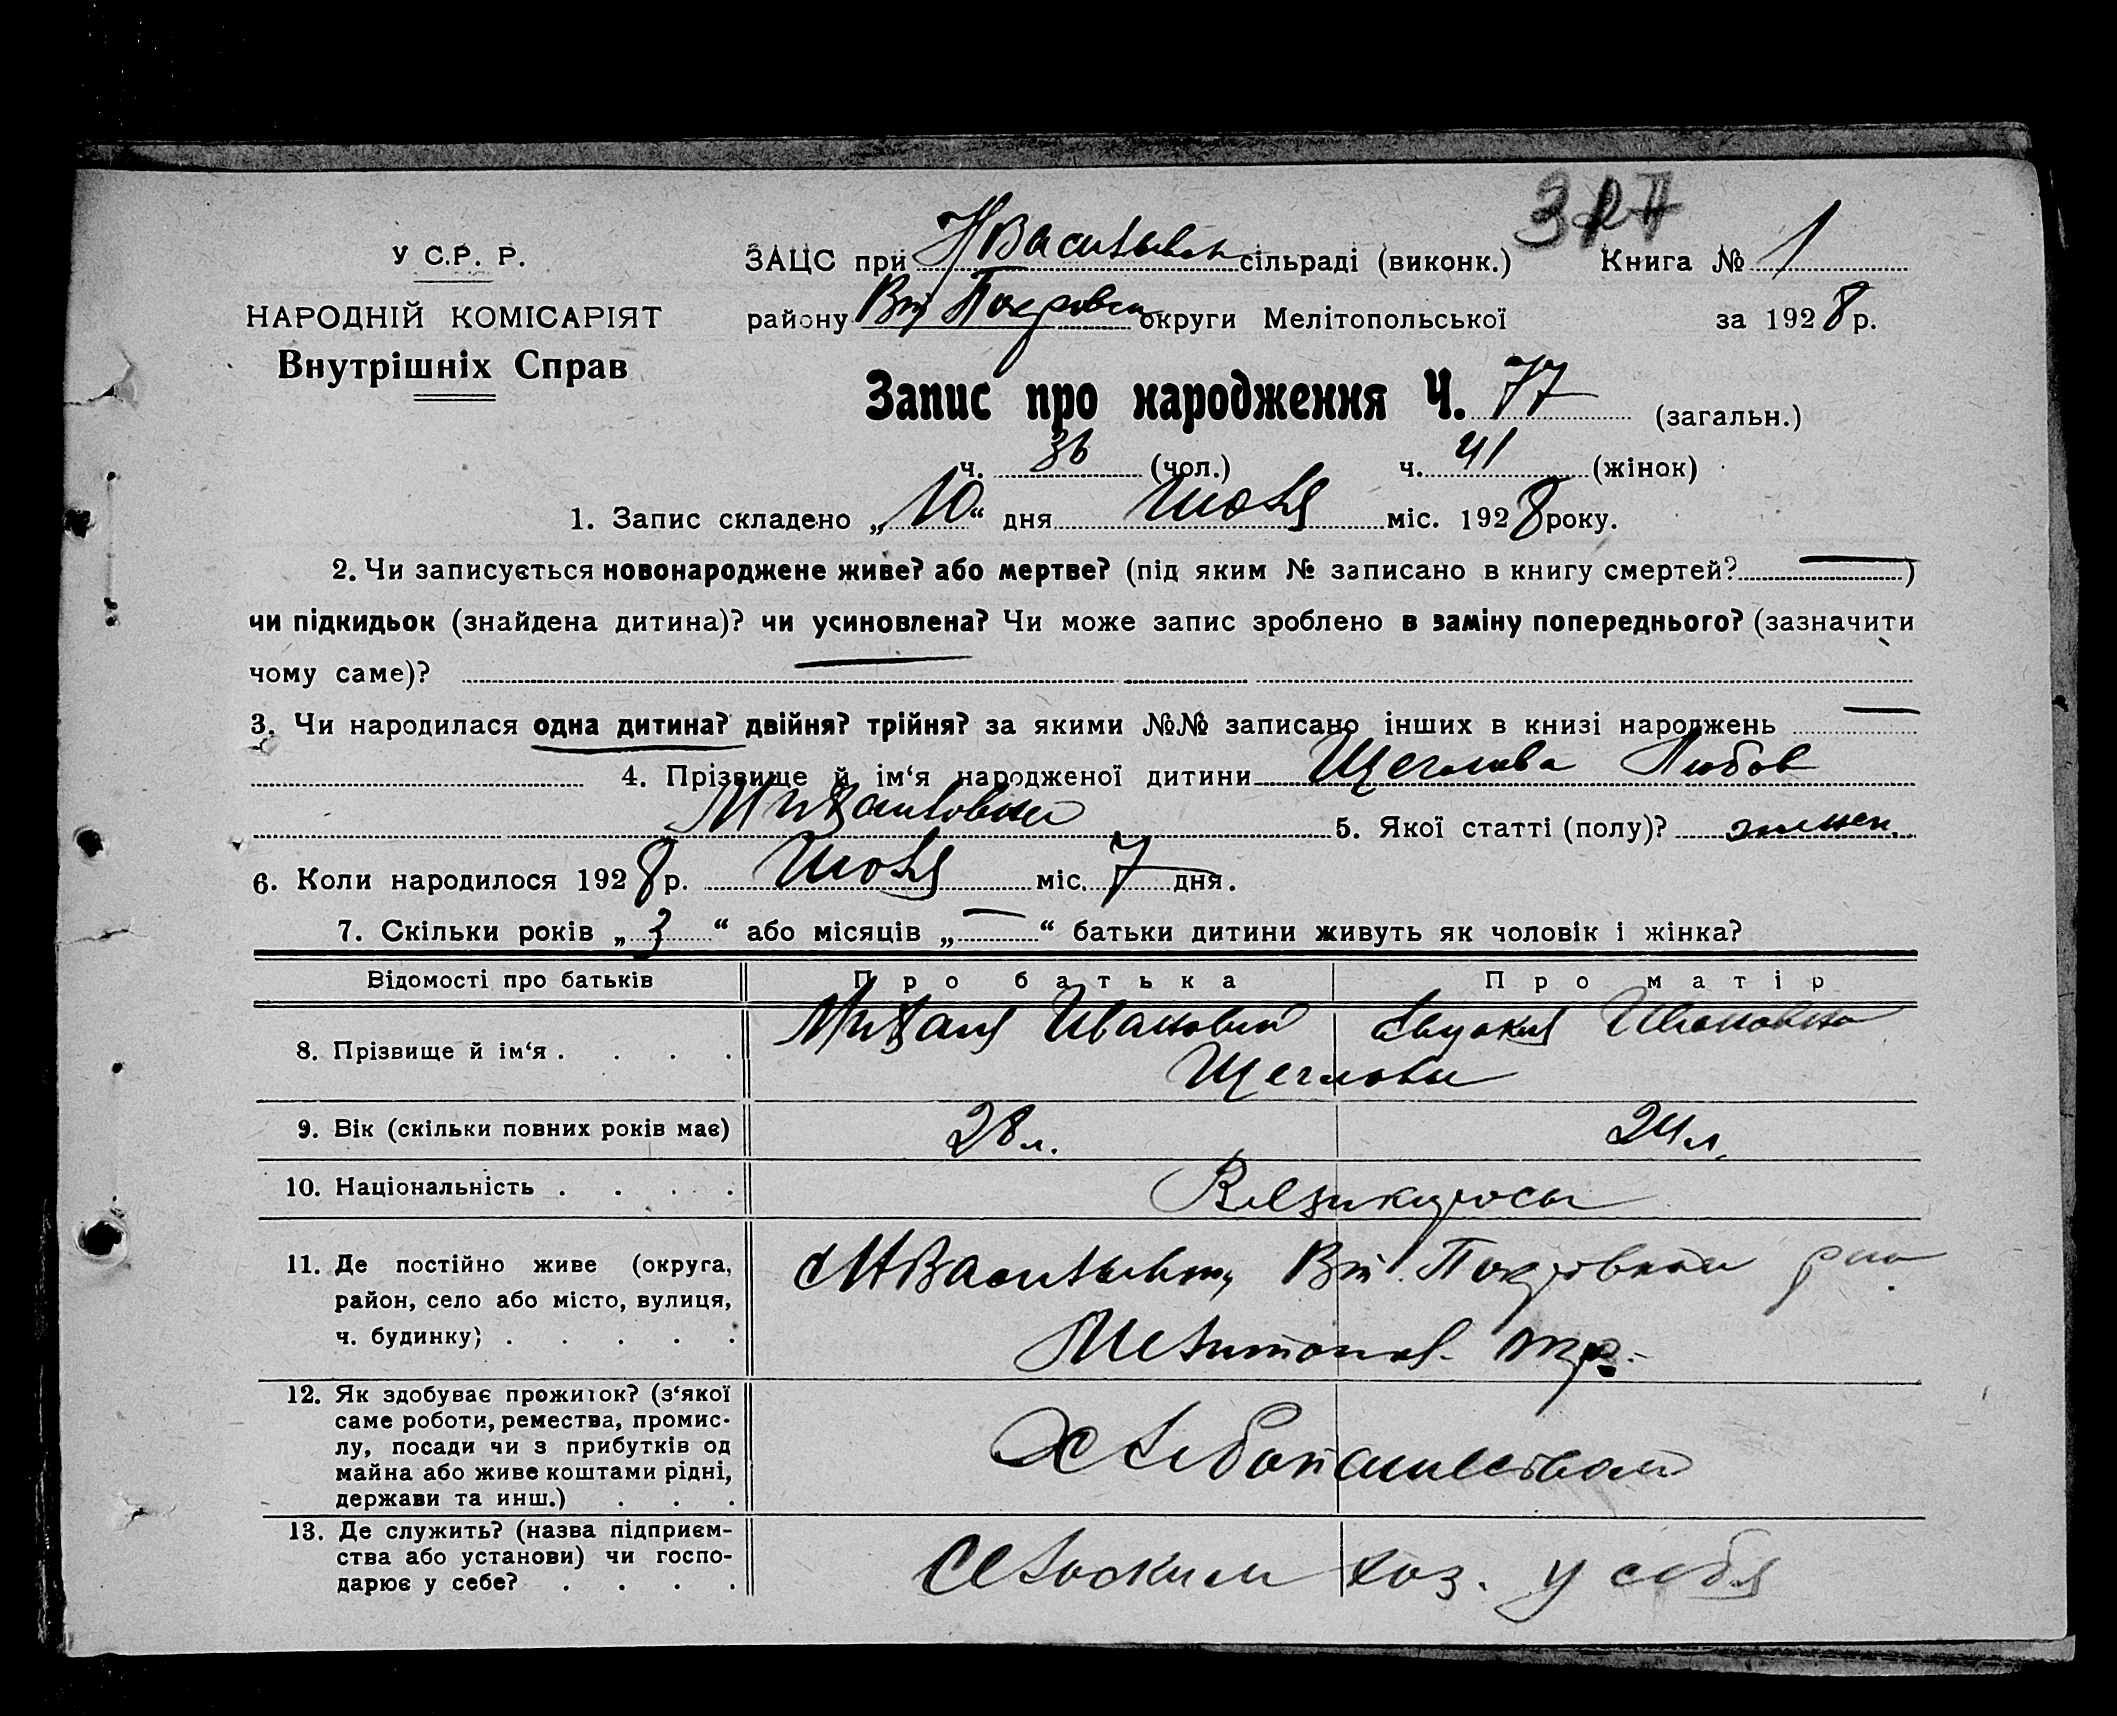 У С.Р. Р.
НАРОДНІЙ КОМІСАРІЯТ
Внутрішніх Справ
ЗАЦС при Н Васильевск сільраді (виконк.) Книга № 1
району Вт Покровск округи Мелітопольської за 1928 р.
Запис про народження Ч. 77 (загальн.)
ч. 36 (чол.) ч. 41 (жінок)
1. Запис складено „10“ дня Июля міс. 1928 року.
2. Чи записується новонароджене живе? або мертве? (під яким № записано в книгу смертей? — )
чи підкидьок (знайдена дитина)? чи усиновлена? Чи може запис зроблено в заміну попереднього? (зазначити
чому саме)? —
3. Чи народилася одна дитина? двійня? трійня? за якими №№ записано інших в книзі народжень —
4. Прізвище й ім‘я народженої дитини Щеглова Любов
Михайловна 5. Якої статті (полу)? женск.
6. Коли народилося 1928 р. Июля міс. 7 дня.
7. Скільки років „3“ або місяців „—“ батьки дитини живуть як чоловік і жінка?
Відомості про батьків Про батька Про матір
8. Прізвище й ім‘я . . . . Михаил Иванович Евдокия Ивановна
Щегловы
9. Вік (скільки повних років має) 28 л. 24 л.
10. Національність . . . . Великоросы
11. Де постійно живе (округа, район, село або місто, вулиця, ч. будинку) . . . . . с Н Васильевку, Вт. Покровский р-н
Мелитопол. окр.
12. Як здобуває прожиток? (з‘якої саме роботи, ремества, промислу, посади чи з прибутків од майна або живе коштами рідні, держави та инш.) . . . Хлебопашеством
13. Де служить? (назва підприємства або установи) чи господарює у себе? . . . . Сельским хоз. у себя